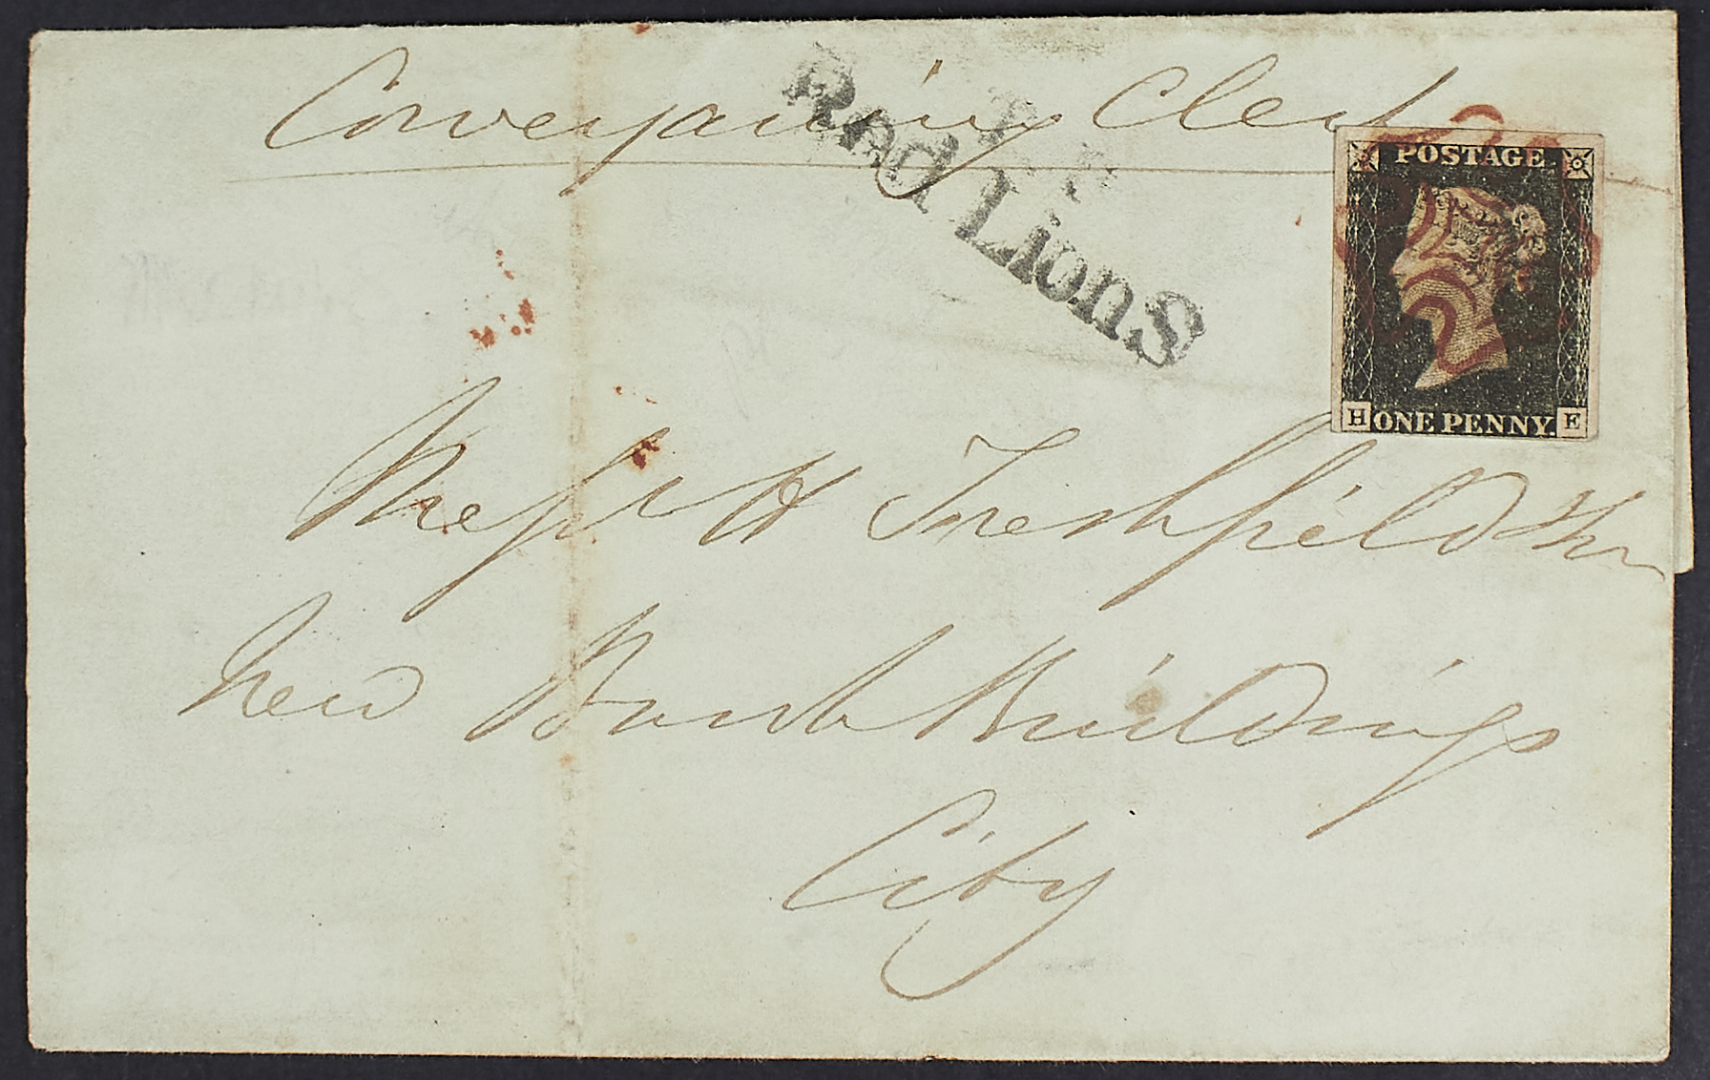 Conveyancing Clerk
Red Lion S
POSTAGE
H ONE PENNY. E
Messrs Freshfield &
New Bank Buildings
City